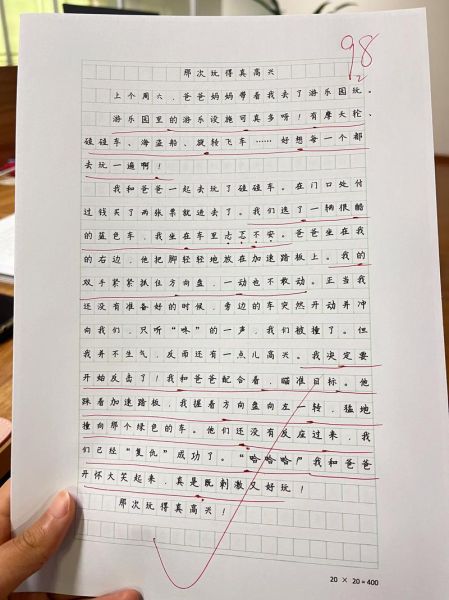 98
2
那次玩得真高兴
上个周六，爸爸妈妈带着我去了游乐园玩。
游乐园里的游乐设施可真多呀！有摩天轮、
碰碰车、海盗船、旋转飞车……好想每一个都
去玩一遍啊！
我和爸爸一起去玩了碰碰车。在门口处付
过钱买了两张票就进去了。我们选了一辆很酷
的蓝色车，我坐在车里忐忑不安。爸爸坐在我
的右边，他把脚轻轻地放在加速踏板上。我的
双手紧紧抓住方向盘，一动也不敢动。正当我
还没有准备好的时候，旁边的车突然开动并冲
向我们，只听“咻”的一声，我们被撞了。但
我并不生气，反而还有一点儿高兴。我决定要
开始反击了！我和爸爸配合着，瞄准目标。他
踩着加速踏板，我握着方向盘向左一转，猛地
撞向那个绿色的车。他们还没有反应过来，我
们已经“复仇”成功了。“哈哈哈！”我和爸爸
开怀大笑起来，真是既刺激又好玩！
那次玩得真高兴！
20 × 20 = 400